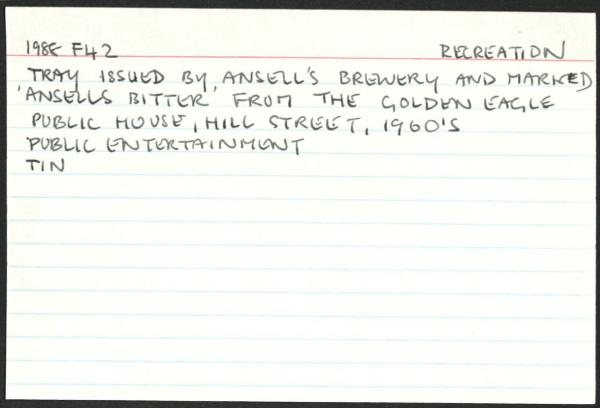 198E F42 RECREATION
TRAY ISSUED BY ANSELL'S BREWERY AND MARKED
'ANSELLS BITTER' FROM THE GOLDEN EAGLE
PUBLIC HOUSE, HILL STREET, 1960'S
PUBLIC ENTERTAINMENT
TIN